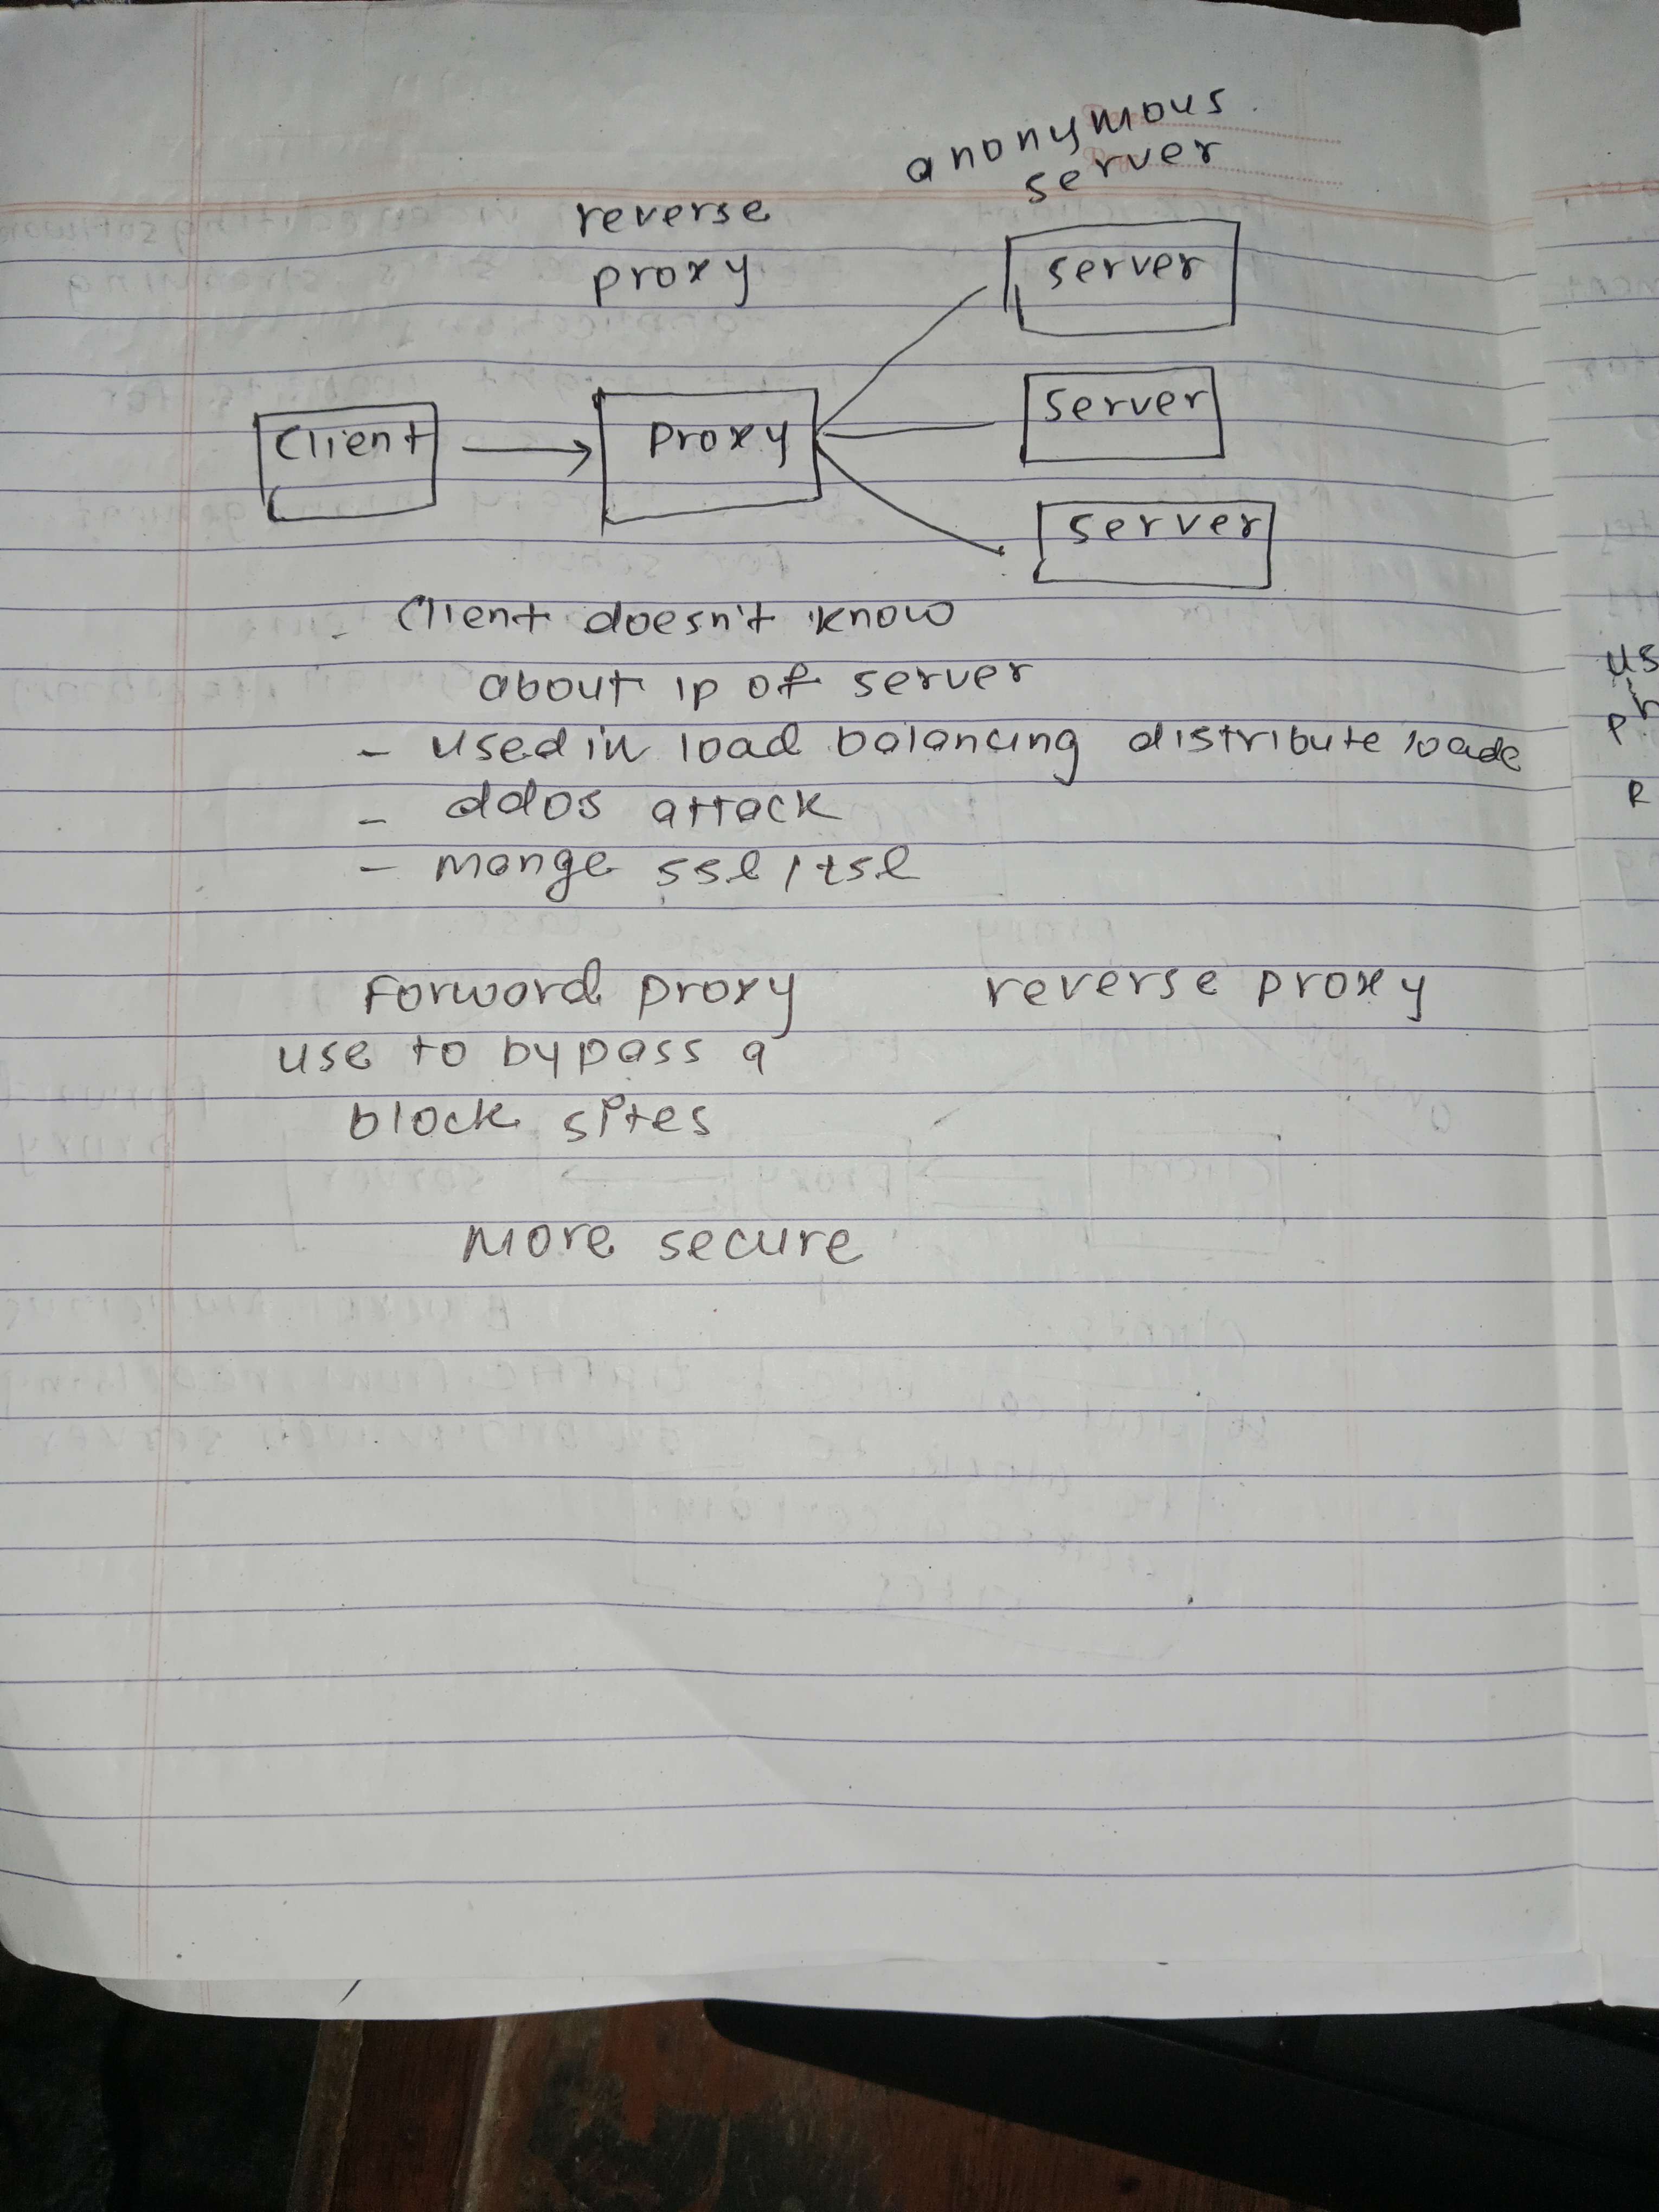 anonymous
server
reverse
proxy
server
server
Client
proxy
server
- Client doesn't know
about ip of server
- used in load balancing distribute loade
- ddos attack
- mange ssl / tsl
Forword proxy reverse proxy
use to bypass a
block sites
More secure
us
R